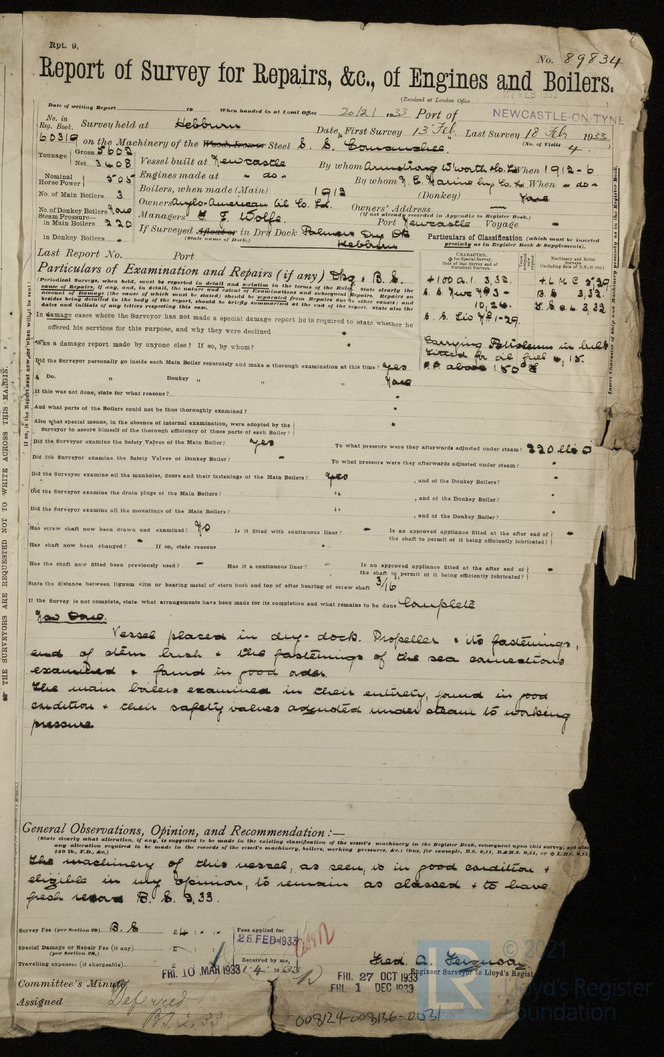 Rpt. 9.
No. 89834
Report of Survey for Repairs, &c., of Engines and Boilers.
(Received at London Office
Date of writing Report 19 When handed in at Local Office 20/2/ 1933 Port of NEWCASTLE-ON-TYNE
No. in Reg. Book. Survey held at Hebburn Date, First Survey 13 Feb, Last Survey 18 Feb 1933
60319 on the Machinery of the Wood, Iron or Steel S. S. (No. of Visits 4)
Tonnage Gross 5602
Net 3408 Vessel built at Newcastle By whom Armstrong Whitworth Co Ld When 1912-6
Nominal Horse Power 505 Engines made at - do - By whom N. E. Marine Eng Co Ld When - do -
No. of Main Boilers 3 Boilers, when made (Main) 1912 (Donkey) None
No. of Donkey Boilers None Owners Anglo-American Oil Co. Ld. Owners' Address
(if not already recorded in Appendix to Register Book.)
Steam Pressure— in Main Boilers 220 Managers G. J. Wolfe Port Newcastle Voyage
in Donkey Boilers If Surveyed Afloat or in Dry Dock Palmers Dry Dk Hebburn
(State name of Dock.)
Particulars of Classification (which must be inserted precisely as in Register Book & Supplements).
Last Report No. Port
Particulars of Examination and Repairs (if any) Dkg & B.S.
+100 A.1. 3,32.
+L.M.C 5,30
B.S 3,32.
10,26.
Carrying Petroleum in bulk
fitted for oil fuel 6,15.
F.P. above 150°F
In damage cases where the Surveyor has not made a special damage report he is required to state whether he
offered his services for this purpose, and why they were declined
Was a damage report made by anyone else? If so, by whom?
Did the Surveyor personally go inside each Main Boiler separately and make a thorough examination at this time? Yes
Do. " Donkey " " " None
If this was not done, state for what reasons?
And what parts of the Boilers could not be thus thoroughly examined?
Also what special means, in the absence of internal examination, were adopted by the
Surveyor to assure himself of the thorough efficiency of those parts of each Boiler?
Did the Surveyor examine the Safety Valves of the Main Boiler? Yes To what pressure were they afterwards adjusted under steam? 220 lbs
Did the Surveyor examine the Safety Valves of Donkey Boiler? - To what pressure were they afterwards adjusted under steam?
Did the Surveyor examine all the manholes, doors and their fastenings of the Main Boilers? Yes , and of the Donkey Boiler?
Did the Surveyor examine the drain plugs of the Main Boilers? " , and of the Donkey Boiler?
Did the Surveyor examine all the mountings of the Main Boilers? " , and of the Donkey Boiler?
Has screw shaft now been drawn and examined? No Is it fitted with continuous liner? - Is an approved appliance fitted at the after end of
the shaft to permit of it being efficiently lubricated?
Has shaft now been changed? If so, state reasons
Has the shaft now fitted been previously used? - Has it a continuous liner? Is an approved appliance fitted at the after end of
the shaft to permit of it being efficiently lubricated?
State the distance between lignum vitæ or bearing metal of stern bush and top of after bearing of screw shaft 3/16"
If the Survey is not complete, state what arrangements have been made for its completion and what remains to be done Complete
Now Done.
Vessel placed in dry-dock. Propeller & its fastenings,
end of stern bush & the fastenings of the sea connections
examined & found in good order.
The main boilers examined in their entirety, found in good
condition & their safety valves adjusted under steam to working
pressure
General Observations, Opinion, and Recommendation:—
(State clearly what alteration, if any, is suggested to be made in the existing classification of the vessel's machinery in the Register Book, consequent upon this survey, and also
The machinery of this vessel, as seen, is in good condition &
eligible in my opinion, to remain as classed & to have
fresh record B.S. 2,33.
Survey Fee (per Section 29) B.S £4 : - : - Fees applied for
25 FEB 1933
Special Damage or Repair Fee (if any) £
(per Section 29.)
Travelling expenses (if chargeable) £ Received by me,
1-4-1933
Fred. A. Ferguson
Engineer Surveyor to Lloyd's Regist
FRI. 10 MAR 1933
FRI. 27 OCT 1933
FRI. 1 DEC 1933
Committee's Minute
Assigned Deferred
BS 2,33
008124-008136-0031
LR
© 2021
Lloyd's Register
Foundation
THE SURVEYORS ARE REQUESTED NOT TO WRITE ACROSS THIS MARGIN.